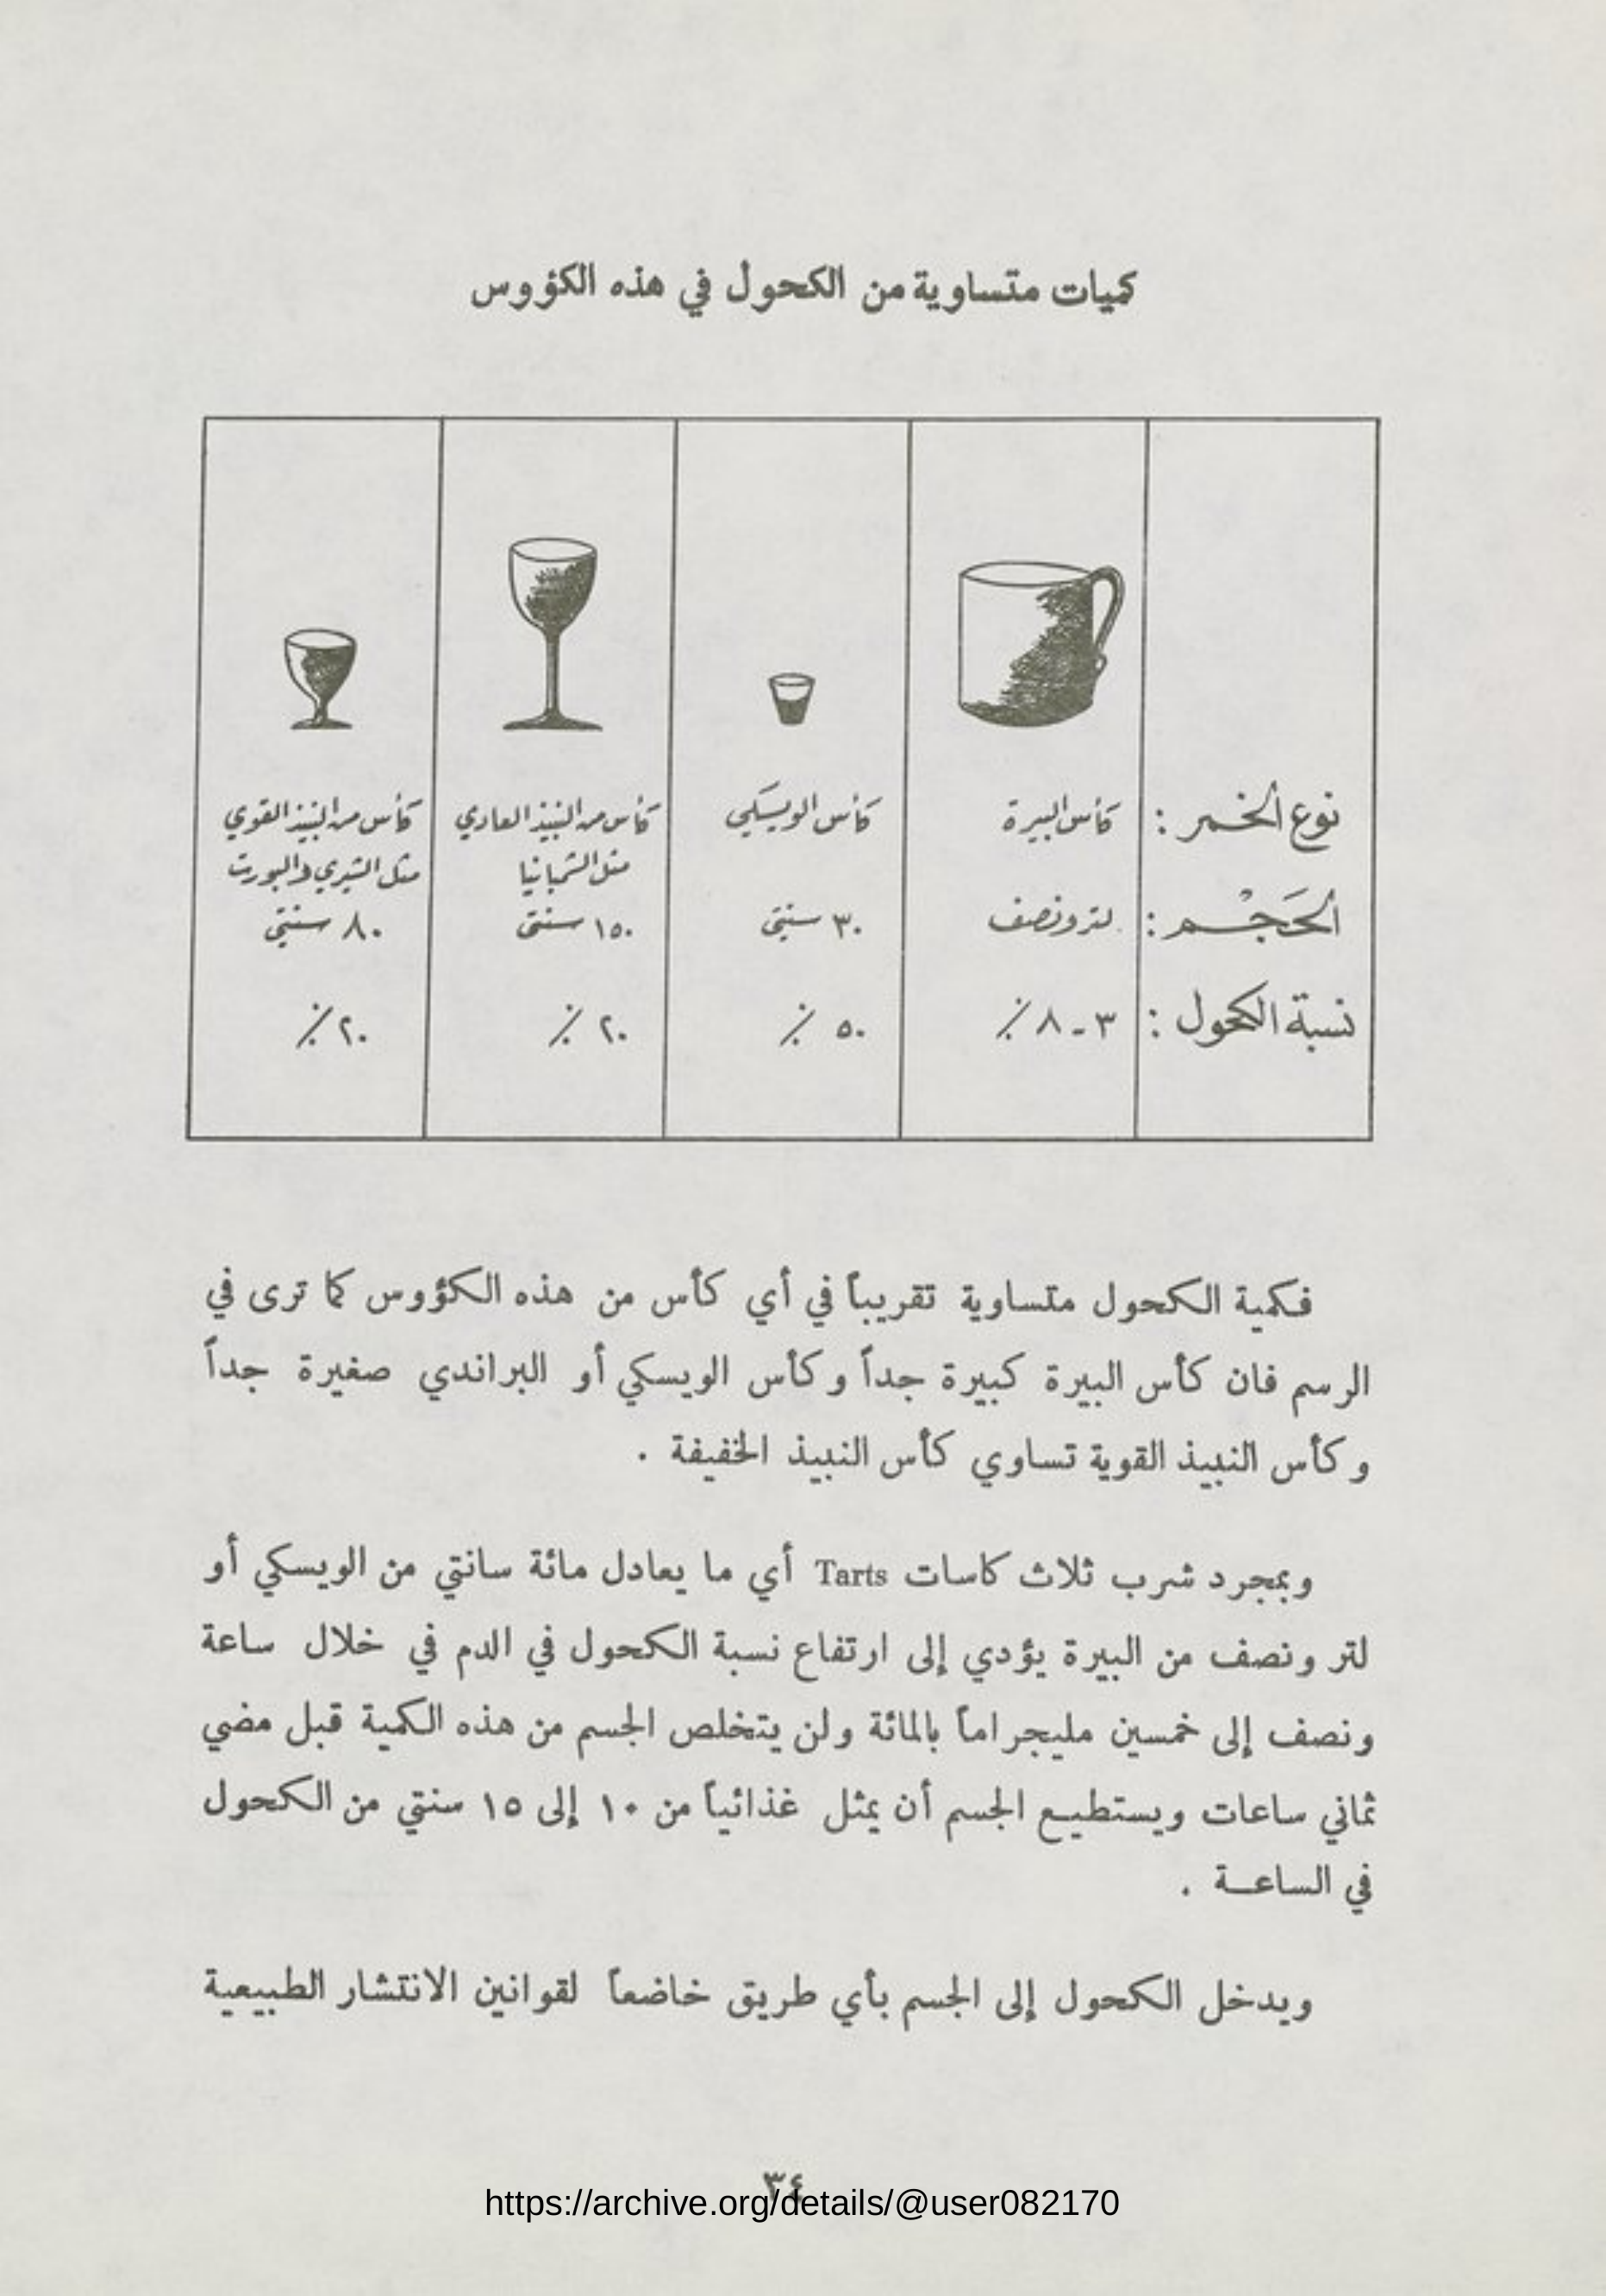 كميات متساوية من الكحول في هذه الكؤوس
نوع الخمر : كأس البيرة كأس الويسكي كأس من النبيذ العادي كأس من النبيذ القوي
مثل الشمبانيا مثل الشيري والبورت
الحَجْم : لتر ونصف ٣٠ سنتي ١٥٠ سنتي ٨٠ سنتي
نسبة الكحول : ٣ - ٨ ٪ ٥٠ ٪ ٢٠ ٪ ٢٠ ٪
فكمية الكحول متساوية تقريباً في أي كأس من هذه الكؤوس كما ترى في
الرسم فان كأس البيرة كبيرة جداً وكأس الويسكي أو البراندي صغيرة جداً
وكأس النبيذ القوية تساوي كأس النبيذ الخفيفة .
وبمجرد شرب ثلاث كاسات Tarts أي ما يعادل مائة سانتي من الويسكي أو
لتر ونصف من البيرة يؤدي إلى ارتفاع نسبة الكحول في الدم في خلال ساعة
ونصف إلى خمسين مليجراماً بالمائة ولن يتخلص الجسم من هذه الكمية قبل مضي
ثماني ساعات ويستطيع الجسم أن يمثل غذائياً من ١٠ إلى ١٥ سنتي من الكحول
في الساعة .
ويدخل الكحول إلى الجسم بأي طريق خاضعاً لقوانين الانتشار الطبيعية
٣٤
https://archive.org/details/@user082170